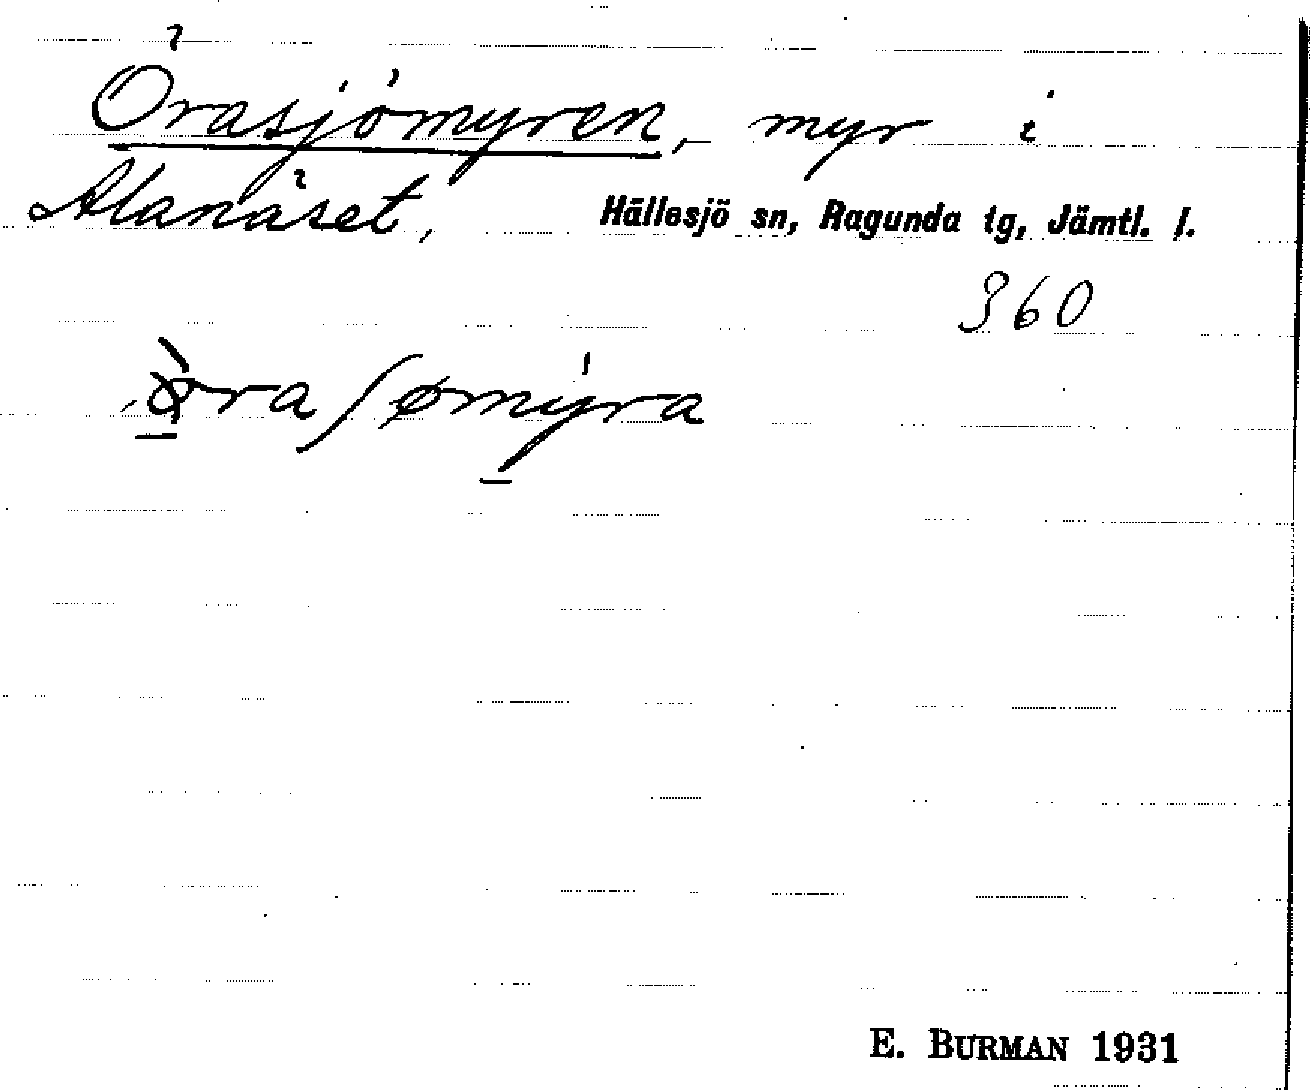 Örasjömyren, myr i
Alanäset, Hällesjö sn, Ragunda tg, Jämtl. l.
360
ø̀ra ʃømýra
E. BURMAN 1931